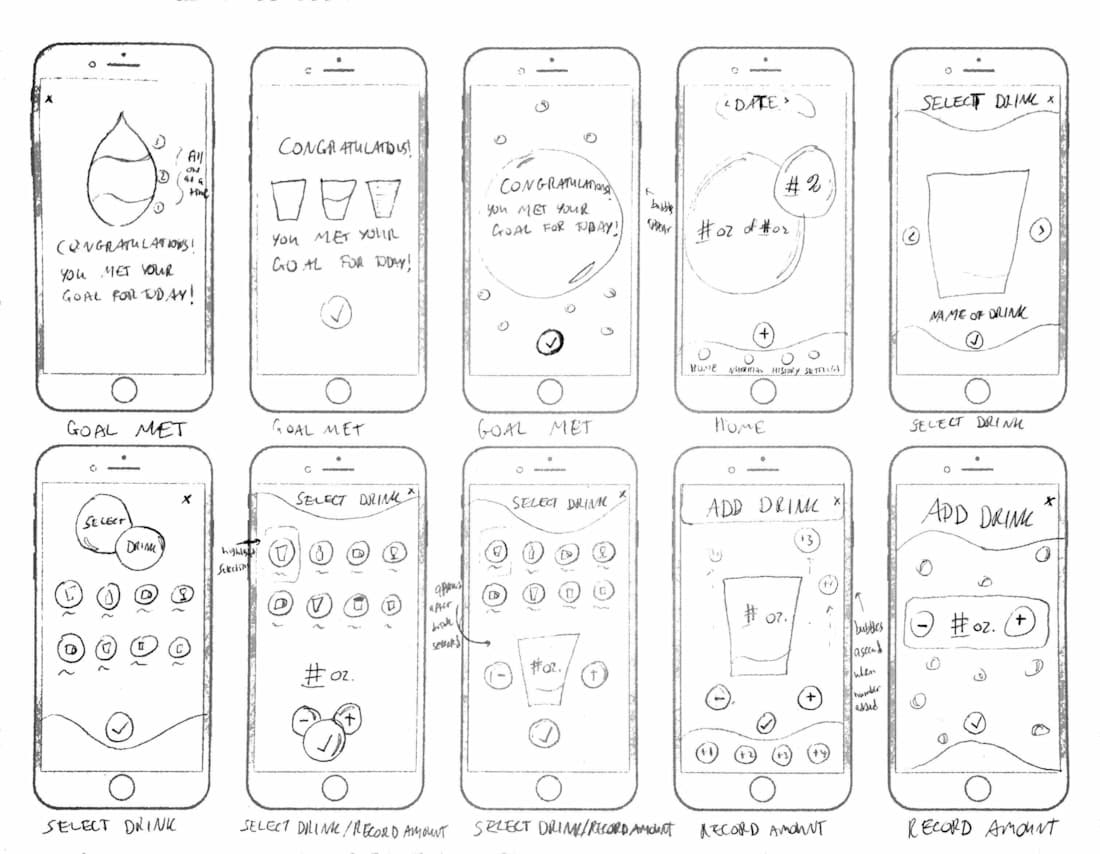 x
①
②
①
All
one
at a
time
CONGRATULATIONS!
YOU MET YOUR
GOAL FOR TODAY!
GOAL MET
CONGRATULATIOUS!
YOU MET YOUR
GOAL FOR TODAY!
GOAL MET
CONGRATULATIONS!
YOU MET YOUR
GOAL FOR TODAY!
bubbles
appear
GOAL MET
< DATE >
# 2
# oz of # oz
+
HOME NUTRITION HISTORY SETTINGS
HOME
SELECT DRINK x
< >
NAME OF DRINK
SELECT DRINK
x
SELECT
DRINK
SELECT DRINK
SELECT DRINK x
highlight
selection
# oz.
- +
SELECT DRINK/RECORD AMOUNT
SELECT DRINK x
appears
after
drink
selected
- # oz. +
SELECT DRINK/RECORD AMOUNT
ADD DRINK x
+3
+4
# oz.
- +
+1 +2 +3 +4
bubbles
ascend
when
number
added
RECORD AMOUNT
ADD DRINK x
- # oz. +
RECORD AMOUNT